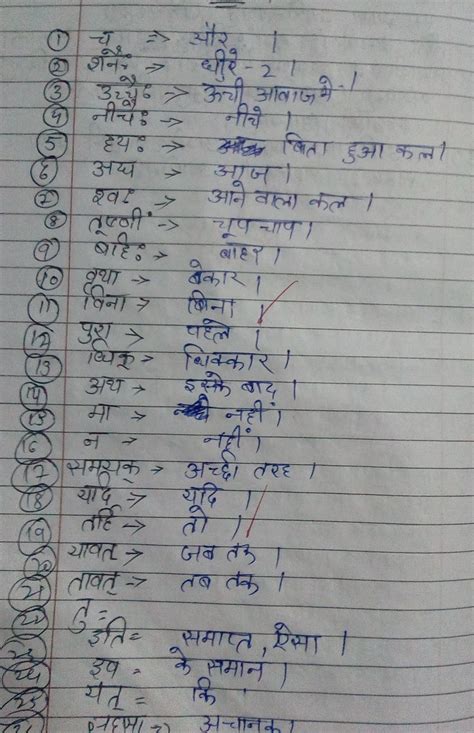 ① च => और ।
② शनैः → धीरे-2 ।
③ उच्चैः → ऊची आवाज मे ।
④ नीचैः → नीचे ।
⑤ हयः → बिता हुआ कल।
⑥ अघ → आज ।
⑦ श्वः → आने वाला कल ।
⑧ तूष्णीं → चूपचाप ।
⑨ बहिः → बाहर ।
⑩ वृथा → बेकार ।
⑪ बिना → बिना ।
⑫ पुरा → पहले ।
⑬ धिक् → धिक्कार ।
⑭ अथ → इसके बाद ।
⑮ मा → नहीं ।
⑯ न → नहीं ।
⑰ समयक् → अच्छी तरह ।
⑱ यदि → यदि ।
⑲ तर्हि → तो ।
⑳ यावत् → जब तक ।
㉑ तावत् → तब तक ।
㉒ तु =
इति = समाप्त, ऐसा ।
इव = के समान ।
यत् = कि ।
अचानक ।